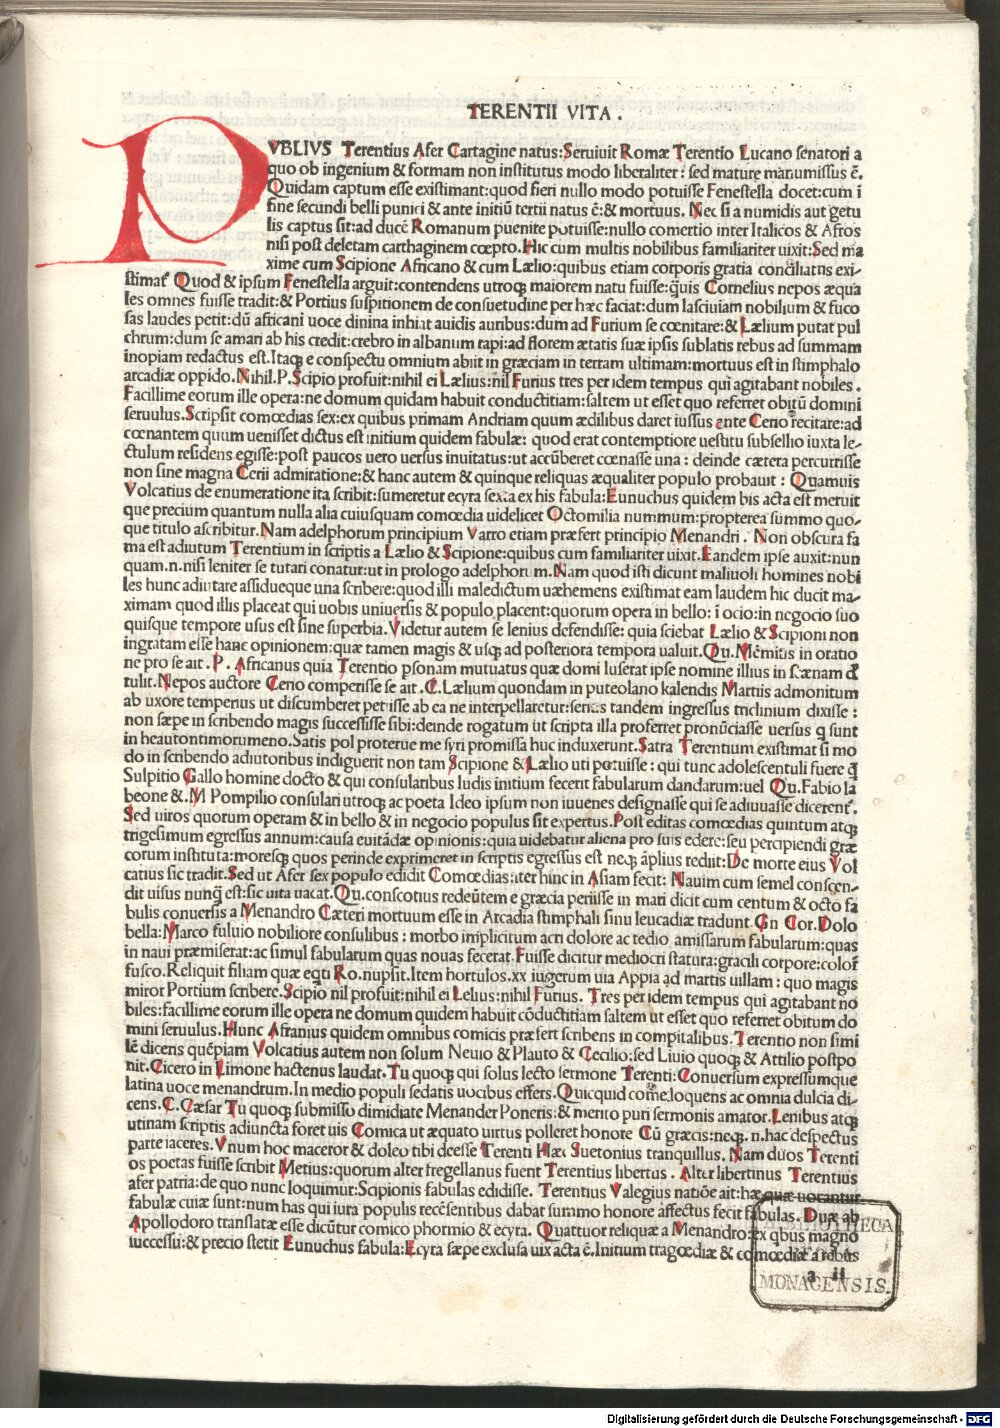 TERENTII VITA .
PVBLIVS Terentius Afer Cartagine natus:Seruiuit Romæ Terentio Lucano senatori a
quo ob ingenium & formam non institutus modo liberaliter : sed mature manumissus ē.
Quidam captum esse existimant:quod fieri nullo modo potuisse Fenestella docet:cum ī
fine secundi belli punici & ante initiū tertii natus ē:& mortuus. Nec si a numidis aut getu
lis captus sit:ad ducē Romanum puenire potuisse:nullo comertio inter Italicos & Afros
nisi post deletam carthaginem cœpto.Hic cum multis nobilibus familiariter uixit:Sed ma
xime cum Scipione Africano & cum Lælio:quibus etiam corporis gratia conciliatus exi-
stimat̃ Quod & ipsum Fenestella arguit:contendens utroq; maiorem natu fuisse:q̃uis Cornelius nepos æqua
les omnes fuisse tradit:& Portius suspitionem de consuetudine per hæc faciat:dum lasciuiam nobilium & fuco
sas laudes petit:dū africani uoce diuina inhiat auidis auribus:dum ad Furium se cœnitare:& Lælium putat pul
chrum:dum se amari ab his credit:crebro in albanum rapi:ad florem ætatis suæ ipsis sublatis rebus ad summam
inopiam redactus est.Itaq; e conspectu omnium abiit in græciam in terram ultimam:mortuus est in stimphalo
arcadiæ oppido.Nihil.P.Scipio profuit:nihil ei Lælius:nil Furius tres per idem tempus qui agitabant nobiles .
Facillime eorum ille opera:ne domum quidam habuit conductitiam:saltem ut esset quo referret obitū domini
seruulus.Scripsit comœdias sex:ex quibus primam Andriam quum ædilibus daret iussus ante Cerio recitare:ad
cœnantem quum uenisset dictus est initium quidem fabulæ: quod erat contemptiore uestitu subsellio iuxta le-
ctulum residens egisse:post paucos uero uersus inuitatus:ut accūberet cœnasse una : deinde cætera percurrisse
non sine magna Cerii admiratione:& hanc autem & quinque reliquas æqualiter populo probauit : Quamuis
Volcatius de enumeratione ita scribit:sumeretur ecyra sexta ex his fabula:Eunuchus quidem bis acta est meruit
que precium quantum nulla alia cuiusquam comœdia uidelicet Octomilia nummum:propterea summo quo-
que titulo ascribitur.Nam adelphorum principium Varro etiam præfert principio Menandri . Non obscura fa
ma est adiutum Terentium in scriptis a Lælio & Scipione:quibus cum familiariter uixit.Eandem ipse auxit:nun
quam.n.nisi leniter se tutari conatur:ut in prologo adelphorum.Nam quod isti dicunt maliuoli homines nobi
les hunc adiutare assidueque una scribere:quod illi maledictum uæhemens existimat eam laudem hic ducit ma-
ximam quod illis placeat qui uobis uniuersis & populo placent:quorum opera in bello: ī ocio:in negocio suo
quisque tempore usus est sine superbia.Videtur autem se lenius defendisse: quia sciebat Lælio & Scipioni non
ingratam esse hanc opinionem:quæ tamen magis & usq; ad posteriora tempora ualuit.Qu.Mēmitis in oratio
ne pro se ait .P. Africanus quia Terentio psonam mutuatus quæ domi luserat ipse nomine illius in scænam d
tulit.Nepos auctore Cerio comperisse se ait .C.Lælium quondam in puteolano kalendis Martiis admonitum
ab uxore temperius ut discumberet petiisse ab ea ne interpellaretur:serius tandem ingressus triclinium dixisse :
non sæpe in scribendo magis successisse sibi:deinde rogatum ut scripta illa proferret pronūciasse uersus q sunt
in heautontimorumeno.Satis pol proterue me syri promissa huc induxerunt.Satra Terentium existimat si mo
do in scribendo adiutoribus indiguerit non tam Scipione & Lælio uti potuisse : qui tunc adolescentuli fuere q̄
Sulpitio Gallo homine docto & qui consularibus ludis initium fecerit fabularum dandarum:uel Qu.Fabio la
beone &.M Pompilio consulari utroq; ac poeta Ideo ipsum non iuuenes designasse qui se adiuuasse dicerent̃.
Sed uiros quorum operam & in bello & in negocio populus sit expertus.Post editas comœdias quintum atq;
trigesimum egressus annum:causa euitādæ opinionis:quia uidebatur aliena pro suis edere:seu percipiendi græ
corum instituta:moresq; quos perinde exprimeret in scriptis egressus est neq; āplius rediit:De morte eius Vol
catius sic tradit.Sed ut Afer sex populo edidit Comœdias:iter hinc in Asiam fecit: Nauim cum semel conscen-
dit uisus nunq̄ est:sic uita uacat.Qu.conscotius redeūtem e græcia periisse in mari dicit cum centum & octo fa
bulis conuersis a Menandro Cæteri mortuum esse in Arcadia stimphali sinu leucadiæ tradunt.Gn Cor.Dolo
bella:Marco fuluio nobiliore consulibus : morbo implicitum acri dolore ac tedio amissarum fabularum:quas
in naui præmiserat:ac simul fabularum quas nouas fecerat.Fuisse dicitur mediocri statura:gracili corpore:color̃
fusco.Reliquit filiam quæ equi Ro.nupsit.Item hortulos.xx iugerum uia Appia ad martis uillam : quo magis
miror Portium scribere.Scipio nil profuit:nihil ei Lelius:nihil Furius. Tres per idem tempus qui agitabant no
biles:facillime eorum ille opera ne domum quidem habuit cōductitiam saltem ut esset quo referret obitum do
mini seruulus.Hunc Afranius quidem omnibus comicis præfert scribens in compitalibus.Terentio non simi
lē dicens quēpiam Volcatius autem non solum Neuio & Plauto & Cecilio:sed Liuio quoq; & Attilio postpo
nit.Cicero in Limone hactenus laudat.Tu quoq; qui solus lecto sermone Terenti:Conuersum expressumque
latina uoce menandrum.In medio populi sedatis uocibus effers.Quicquid come loquens ac omnia dulcia di-
cens.C.Cæsar Tu quoq; submisso dimidiate Menander Poneris:& merito puri sermonis amator.Lenibus atq;
utinam scriptis adiuncta foret uis Comica ut æquato uirtus polleret honore Cū græcis:neq;.n.hac despectus
parte iaceres.Vnum hoc maceror & doleo tibi deesse Terenti Hæc Suetonius tranquillus.Nam duos Terenti
os poetas fuisse scribit Metius:quorum alter fregellanus fuerit Terentius libertus . Alter libertinus Terentius
afer patria:de quo nunc loquimur:Scipionis fabulas edidisse. Terentius Valegius natiōe ait:hæ quæ uocantur
fabulæ cuiæ sunt:num has qui iura populis recēsentibus dabat summo honore affectus fecit fabulas. Duæ ab
Apollodoro translatæ esse dicūtur comico phormio & ecyra. Quattuor reliquæ a Menandro:ex qbus magno
successu:& precio stetit Eunuchus fabula:Ecyra sæpe exclusa uix acta ē.Initium tragœdiæ & comœdiæ a rebus
a ii
BIBLIOTHECA
REGIA
MONACENSIS.
Digitalisierung gefördert durch die Deutsche Forschungsgemeinschaft - DFG